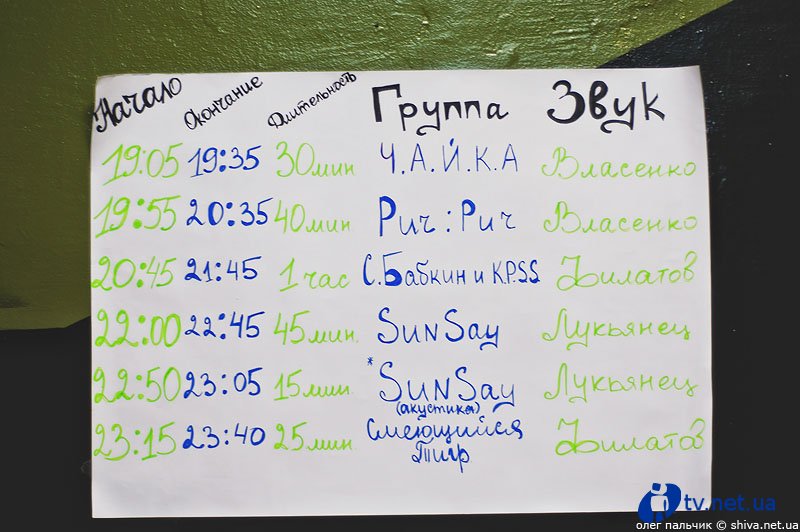 Начало Окончание Длительность Группа Звук
19:05 19:35 30 мин Ч.А.Й.К.А Власенко
19:55 20:35 40 мин Рич:Рич Власенко
20:45 21:45 1 час С.Бабкин и K.P.SS Филатов
22:00 22:45 45 мин. SunSay Лукьянец
22:50 23:05 15 мин. *SunSay Лукьянец
(акустика)
23:15 23:40 25 мин. Смеющийся Филатов
Тигр
tv.net.ua
олег пальчик © shiva.net.ua